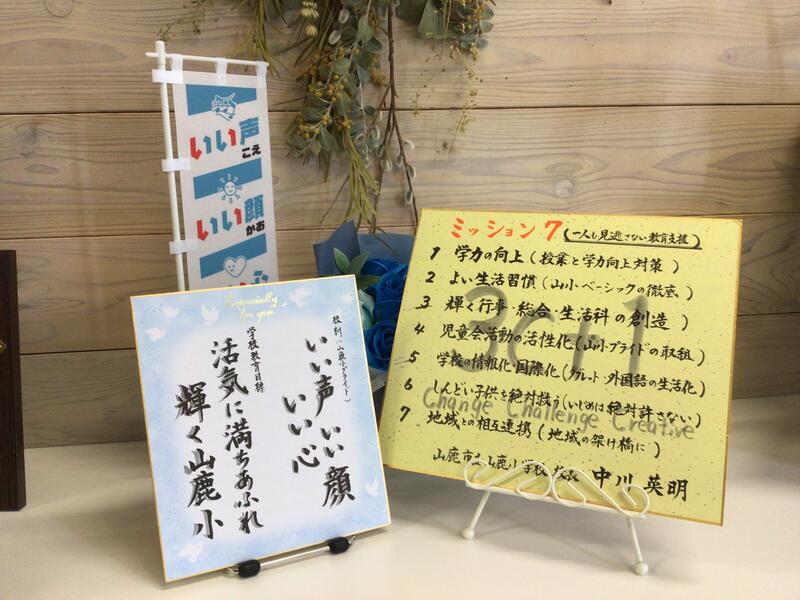 いい声
こえ
いい顔
かお
Especially
for you
校訓（山鹿小プライド）
いい声 いい顔
いい心
学校教育目標
活気に満ちあふれ
輝く山鹿小
ミッション7（一人も見逃さない教育支援）
1 学力の向上（授業と学力向上対策）
2 よい生活習慣（山小ベーシックの徹底）
3 輝く行事・総合・生活科の創造）
4 児童会活動の活性化（山小プライドの取組）
5 学校の情報化・国際化（タブレット・外国語の生活化）
6 しんどい子供を絶対救う（いじめは絶対許さない）
7 地域との相互連携（地域の架け橋に）
3C+1
Change Challenge Creative
山鹿市立山鹿小学校 校長 中川 英明